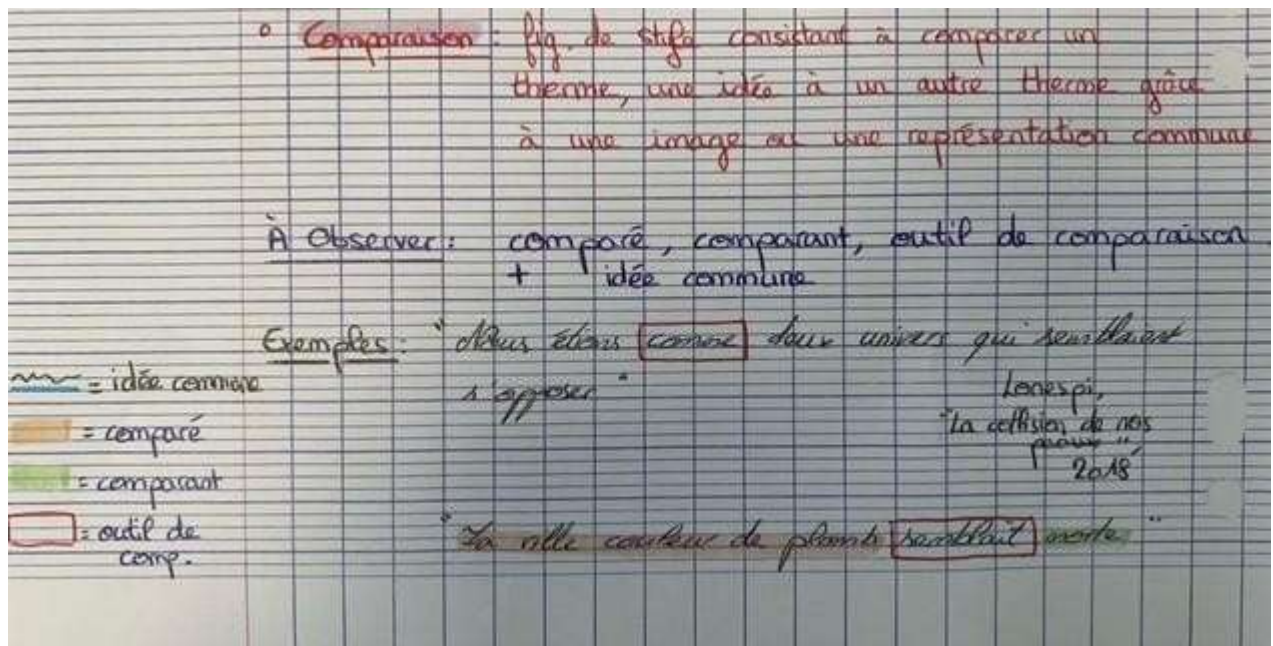 ° Comparaison : fig. de style consistant à comparer un
therme, une idée à un autre therme grâce
à une image ou une représentation commune
À Observer : comparé, comparant, outil de comparaison.
+ idée commune
Exemples : "Nous étions comme deux univers qui semblaient
s'opposer"
Lonespi,
"La collision de nos
peaux"
2018
= idée commune
= comparé
= comparant
= outil de
comp.
"La ville couleur de plomb semblait morte"